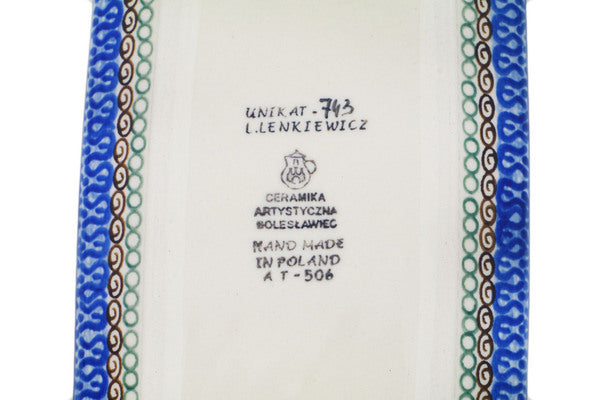 UNIKAT - 743
L. LENKIEWICZ
CERAMIKA
ARTYSTYCZNA
BOLESŁAWIEC
HAND MADE
IN POLAND
AT-506